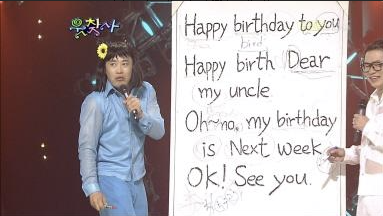 웃찾사
Happy birthday to you
bird
Happy birth Dear
my uncle
Oh~no, my birthday
is Next week
OK! See you.